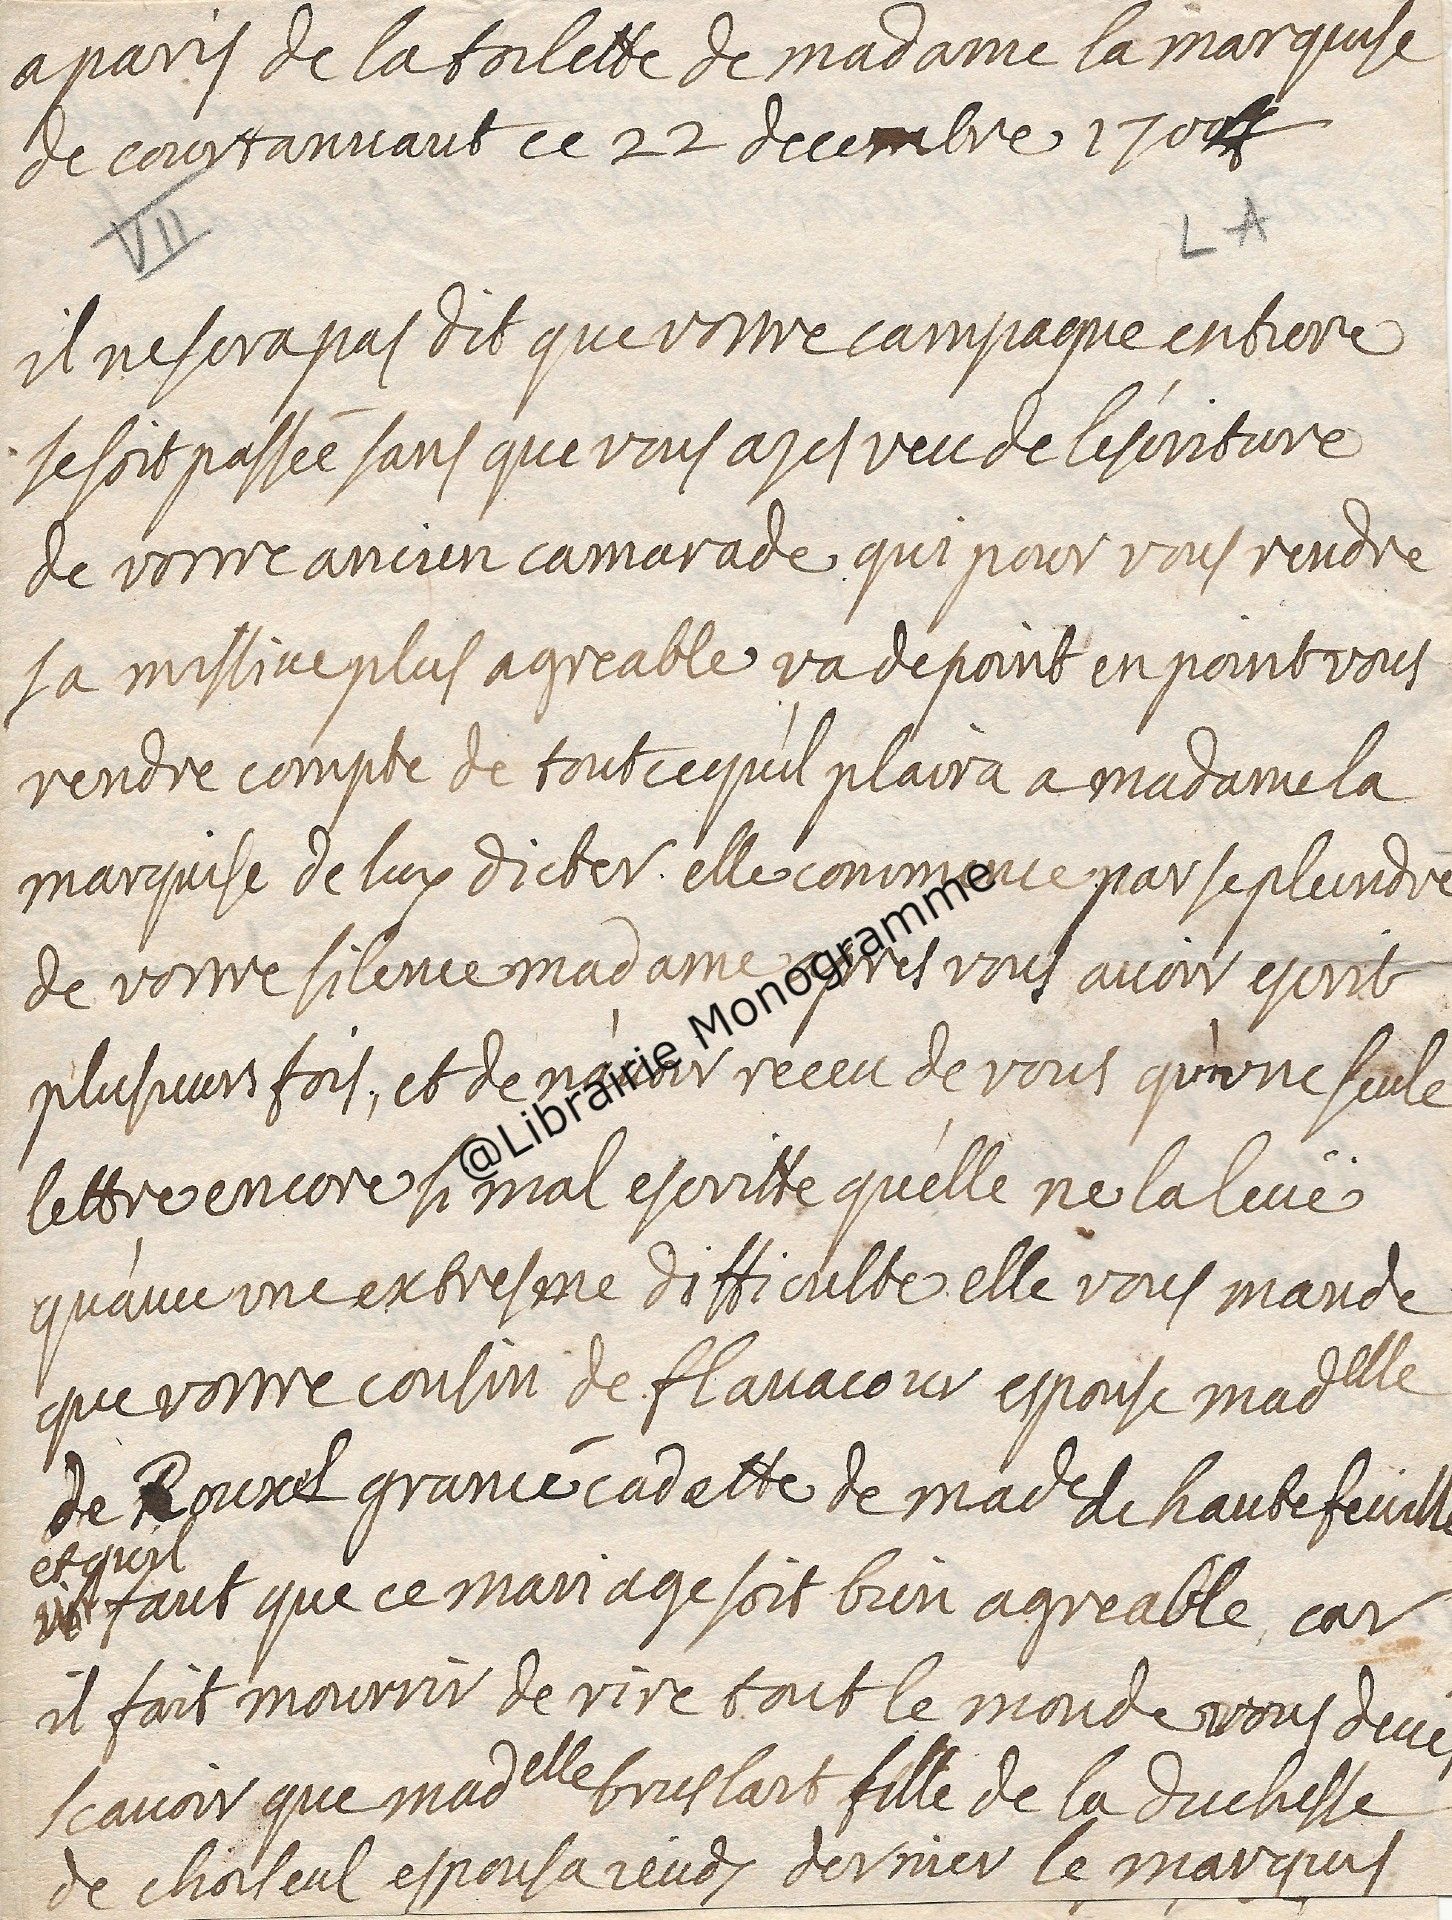 a paris de la toilette de madame la marquise
de courtanuaut ce 22 decembre 1704
VII
L A
il ne sera pas dit que vostre campagne entiere
se soit passée sans que vous ayes veu de lescriture
de vostre ancien camarade qui pour vous rendre
sa missiue plus agreable va de point en point vous
rendre compte de tout ce qu'il plaira a madame la
marquise de luy dicter. elle commence par se pleindre
de vostre silence madame apres vous auoir escrit
plusieurs fois, et de n'auoir receu de vous qu'une seule
lettre encore si mal escritte qu'elle ne la leüe
qu'auec une extresme difficulte. elle vous mande
que vostre cousin de flauacour espouse madelle
de Rouxel grancé cadette de made de hautefeuille
et qu'il
faut que ce mariage soit bien agreable, car
il fait mourrir de rire tout le monde vous deues
scauoir que madelle bruslart fille de la duchesse
de choiseul espousa jeudy dernier le marquis
@Librairie Monogramme